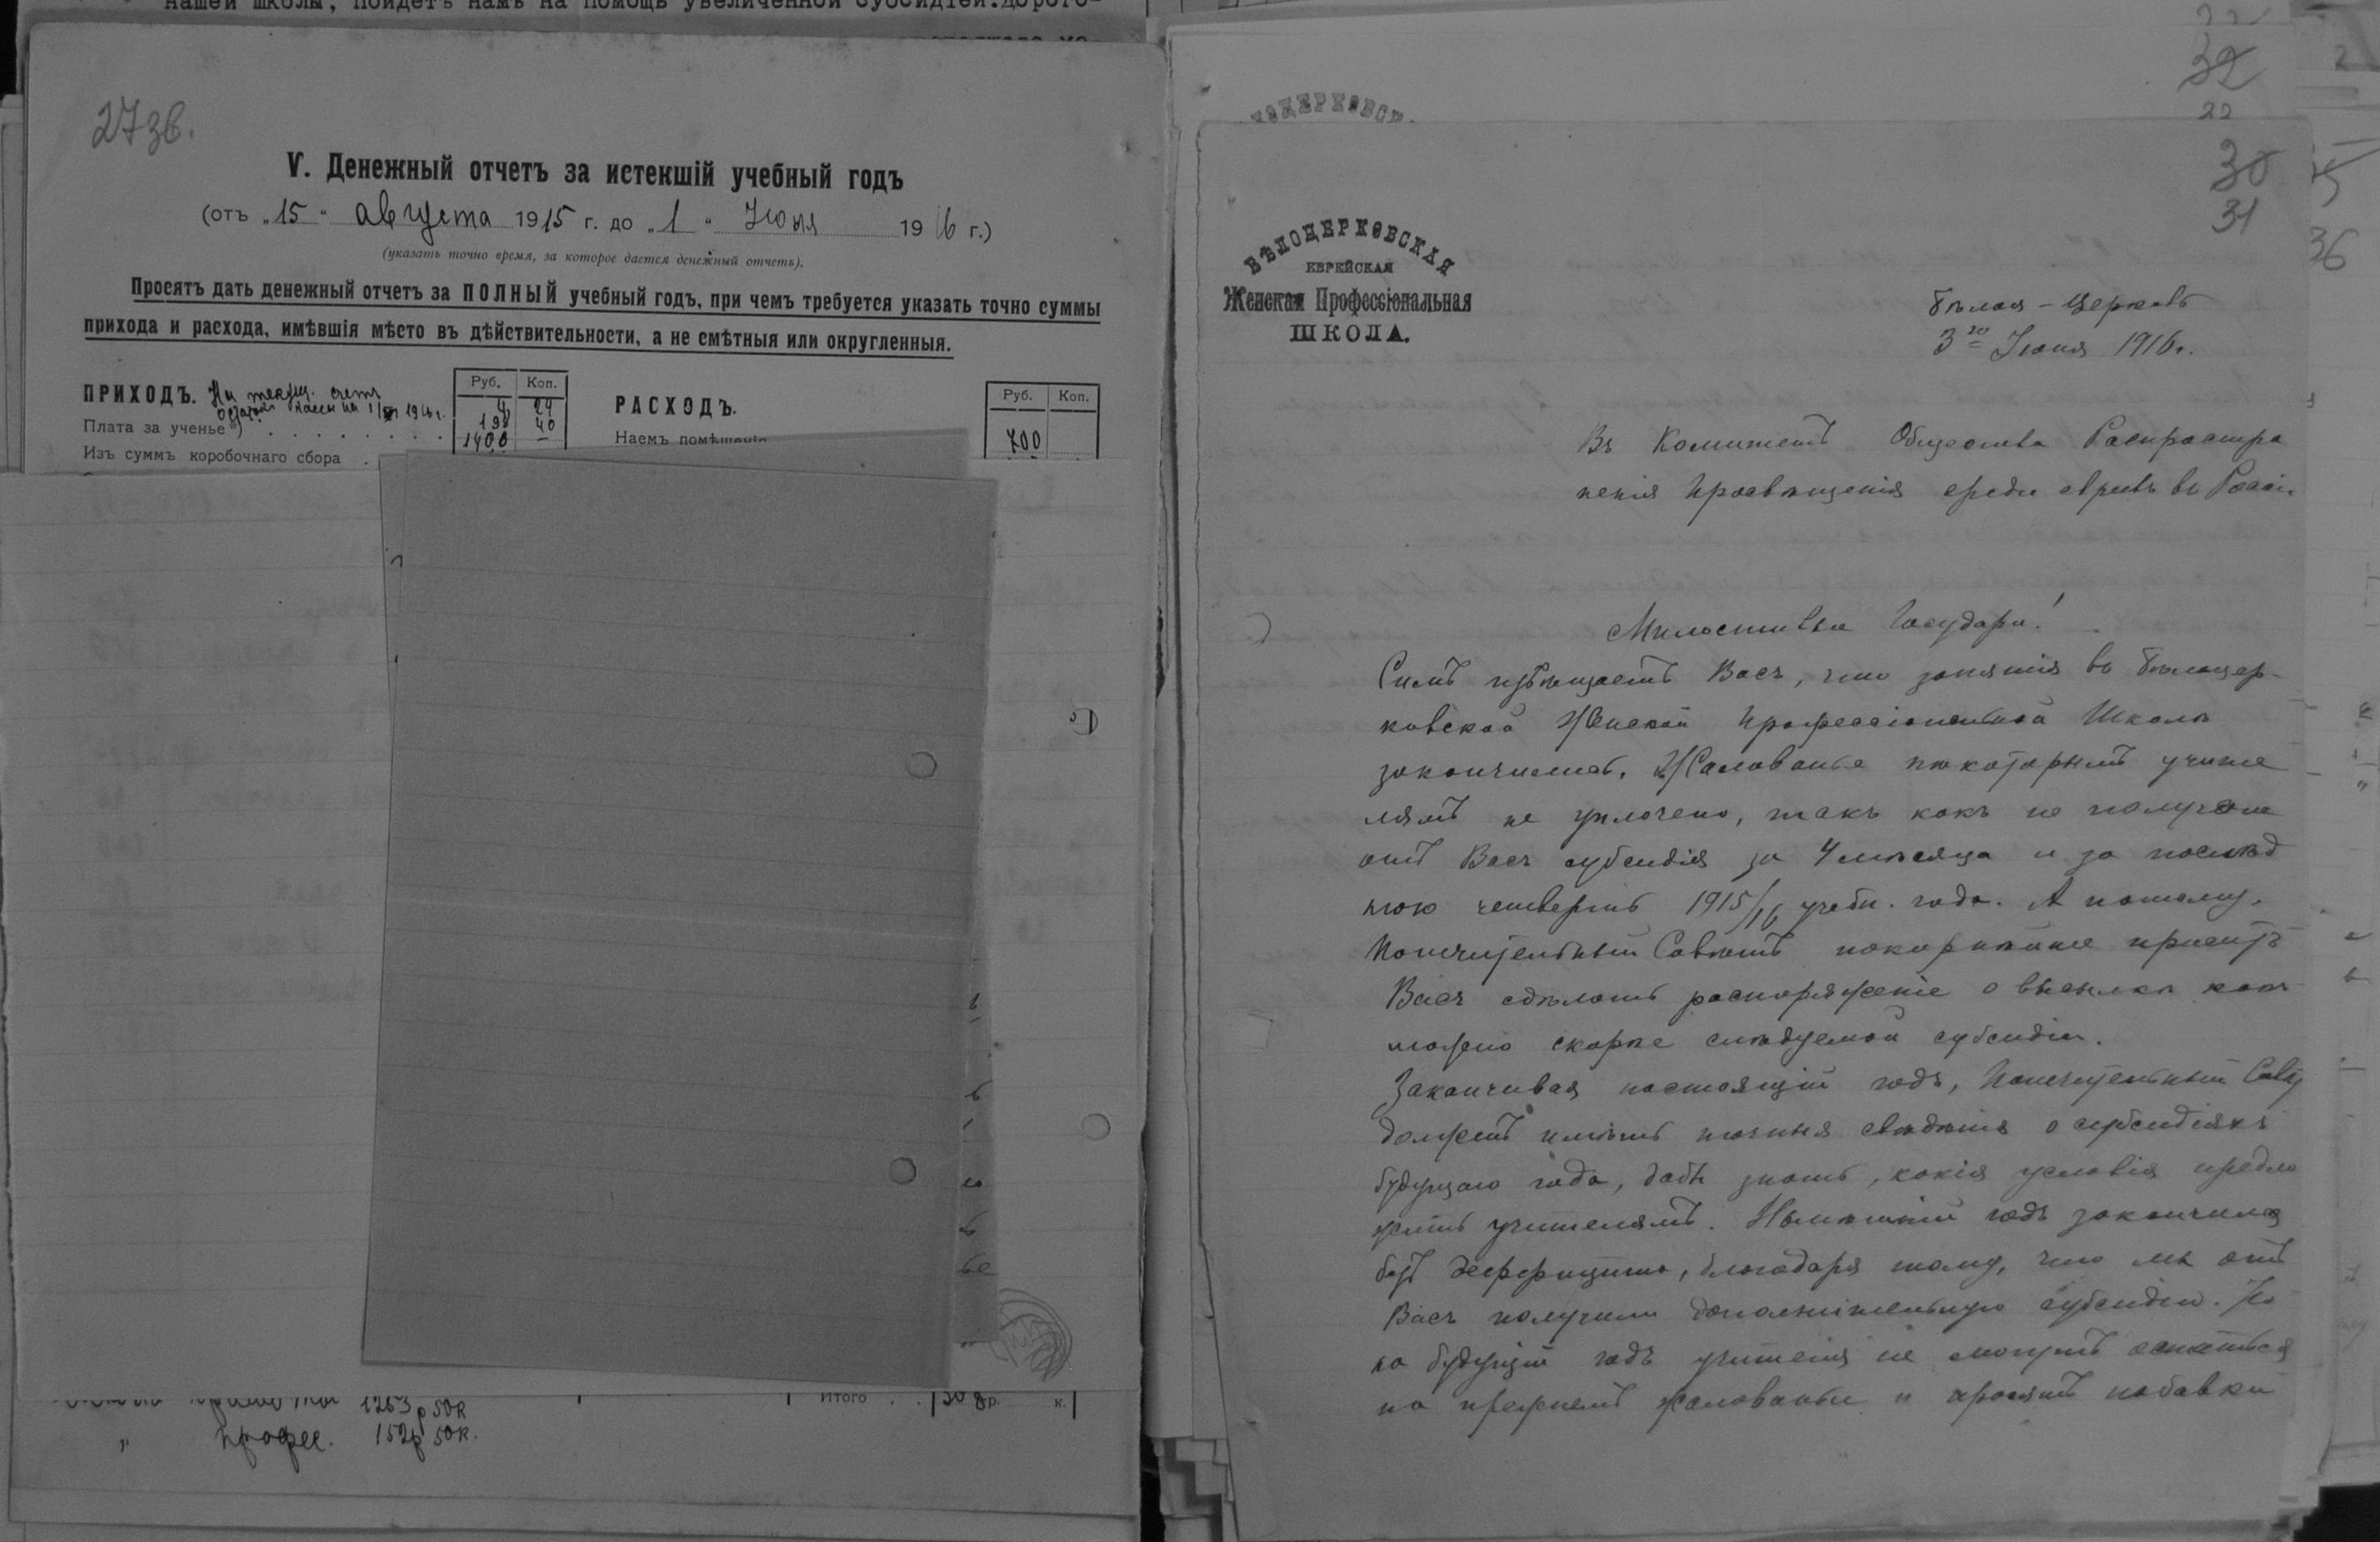 нашей школы, пойдетъ намъ на помощь увеличенной субсидіей. Дорого-
27 зв.
V. Денежный отчетъ за истекшій учебный годъ
(отъ „15“ августа 1915 г. до „1“ Іюня 1916 г.)
(указать точно время, за которое дается денежный отчетъ).
Просятъ дать денежный отчетъ за ПОЛНЫЙ учебный годъ, при чемъ требуется указать точно суммы
прихода и расхода, имѣвшія мѣсто въ дѣйствительности, а не смѣтныя или округленныя.
ПРИХОДЪ. На текущ. счету
Руб. Коп.
4 24
Плата за ученье
1400 —
Изъ суммъ коробочнаго сбора
РАСХОДЪ.
Руб. Коп.
Наемъ помѣщенія
700
Итого
р. к.
1263 р 50 к
" профес. 152 р 50 к.
32
22
30
31
36
БѢЛОЦЕРКОВСКАЯ
ЕВРЕЙСКАЯ
Женская Профессіональная
ШКОЛА.
Бѣлая-Церковь
3го Іюня 1916 г.
Въ Комитетъ Общества Распростра
ненія Просвѣщенія среди евреевъ въ Россіи
Милостивые Государи!
Симъ извѣщаетъ Васъ, что занятія въ Бѣлоцер-
ковской Женской Профессіональной Школѣ
закончились. Жалованье нѣкоторымъ учите
лямъ не уплочено, такъ какъ не получено
отъ Васъ субсидія за 4 мѣсяца и за послѣд
нюю четверть 1915/16 учебн. года. А потому,
Попечительный Совѣтъ покорнѣйше проситъ
Васъ сдѣлать распоряженіе о высылкѣ какъ
можно скорѣе слѣдуемой субсидіи.
Заканчивая настоящій годъ, Попечительный Совѣт
долженъ имѣть точныя свѣдѣнія о субсидіяхъ
будущаго года, дабы знать, какія условія предло
жить учителямъ. Нынѣшній годъ закончился
безъ деффицита, благодаря тому, что мы отъ
Васъ получили дополнительную субсидію. Но
на будущій годъ учителя не могутъ остаться
на прежнемъ жалованьи и просятъ набавки